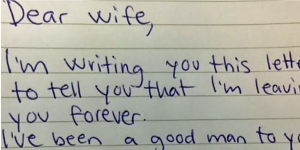 Dear wife,
I'm writing you this lett
to tell you that I'm leavi
you forever.
I've been a good man to y